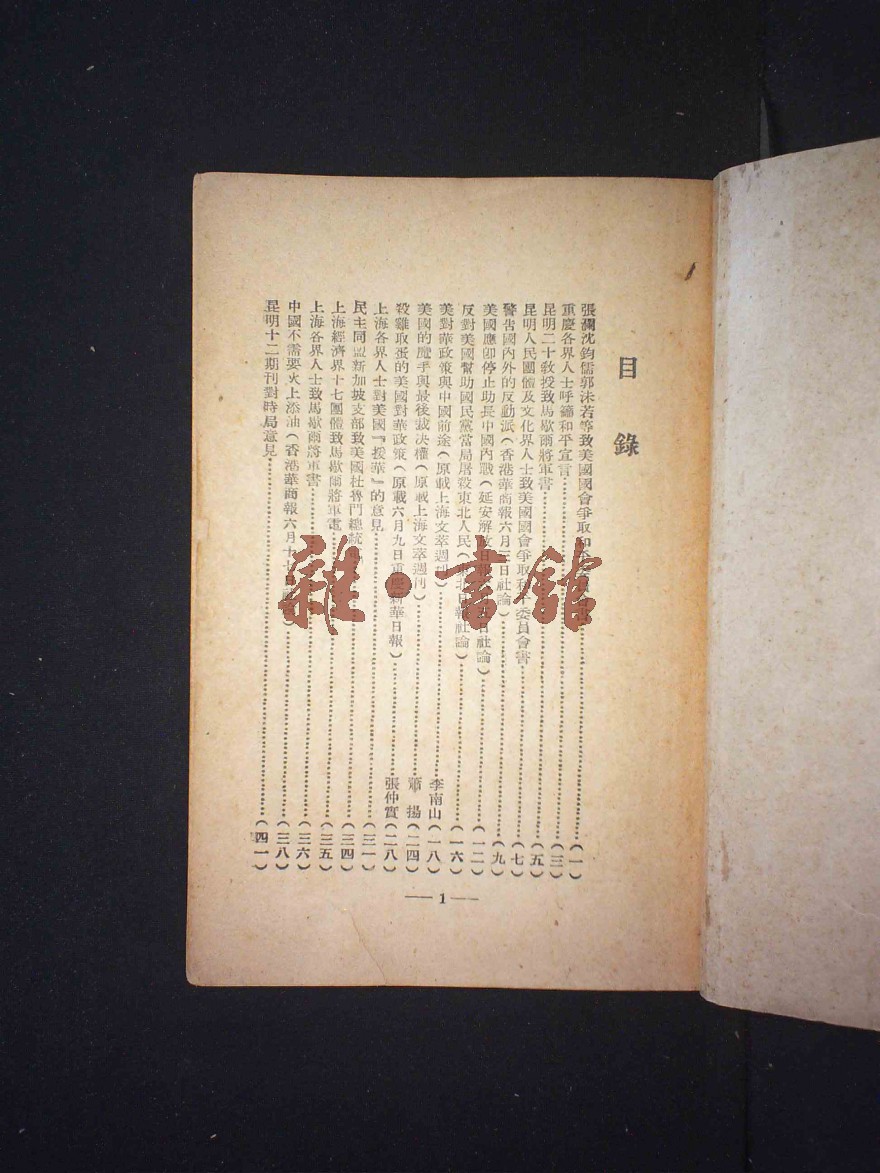 目錄
張瀾沈鈞儒郭沫若等致美國國會爭取和平委員會書……(一)
重慶各界人士呼籲和平宣言……(三)
昆明二十教授致馬歇爾將軍書……(五)
昆明人民團體及文化界人士致美國國會爭取和平委員會書……(七)
警告國內外的反動派(香港華商報六月三日社論)……(九)
美國應卽停止助長中國內戰(延安解放日報 日社論)……(一二)
反對美國幫助國民黨當局屠殺東北人民(東北日報社論)……(一六)
美對華政策與中國前途(原載上海文萃週刊)……李南山(一八)
美國的魔手與最後裁决權(原載上海文萃週刊)……蕭揚(二四)
殺雞取蛋的美國對華政策(原載六月九日重慶新華日報)……張仲實(二八)
上海各界人士對美國『援華』的意見……(三一)
民主同盟新加坡支部致美國杜魯門總統電……(三四)
上海經濟界十七團體致馬歇爾將軍電……(三五)
上海各界人士致馬歇爾將軍書……(三六)
中國不需要火上添油(香港華商報六月十七日社論)……(三八)
昆明十二期刊對時局意見……(四一)
— 1 —
雜·書館